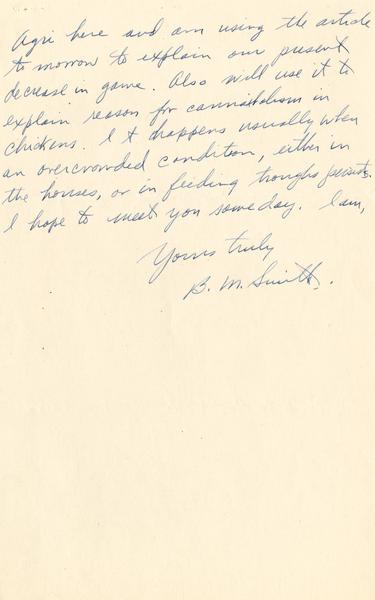 Agri here and am using the article
to morrow to explain our present
decrease in game. Also will use it to
explain reason for cannibalism in
chickens. It happens usually when
an overcrowded condition, either in
the houses, or in feeding troughs persists.
I hope to meet you some day. I am,
Yours truly
B. M. Smith.